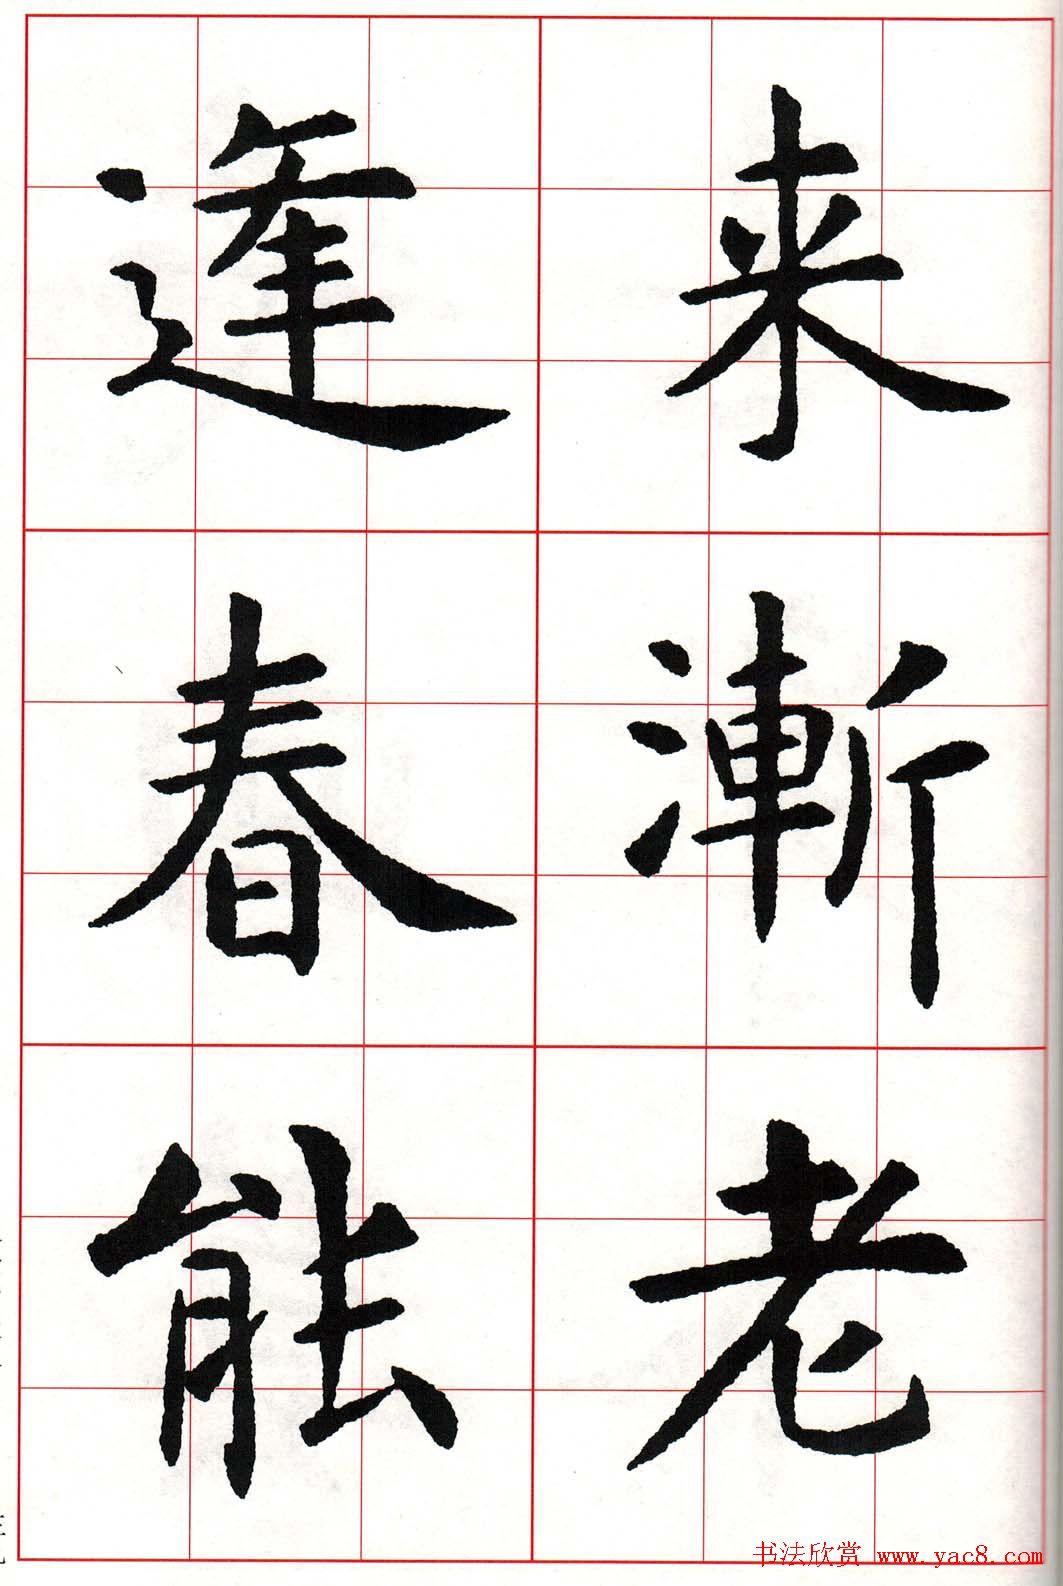 来漸老
逢春能
书法欣赏 www.yac8.com